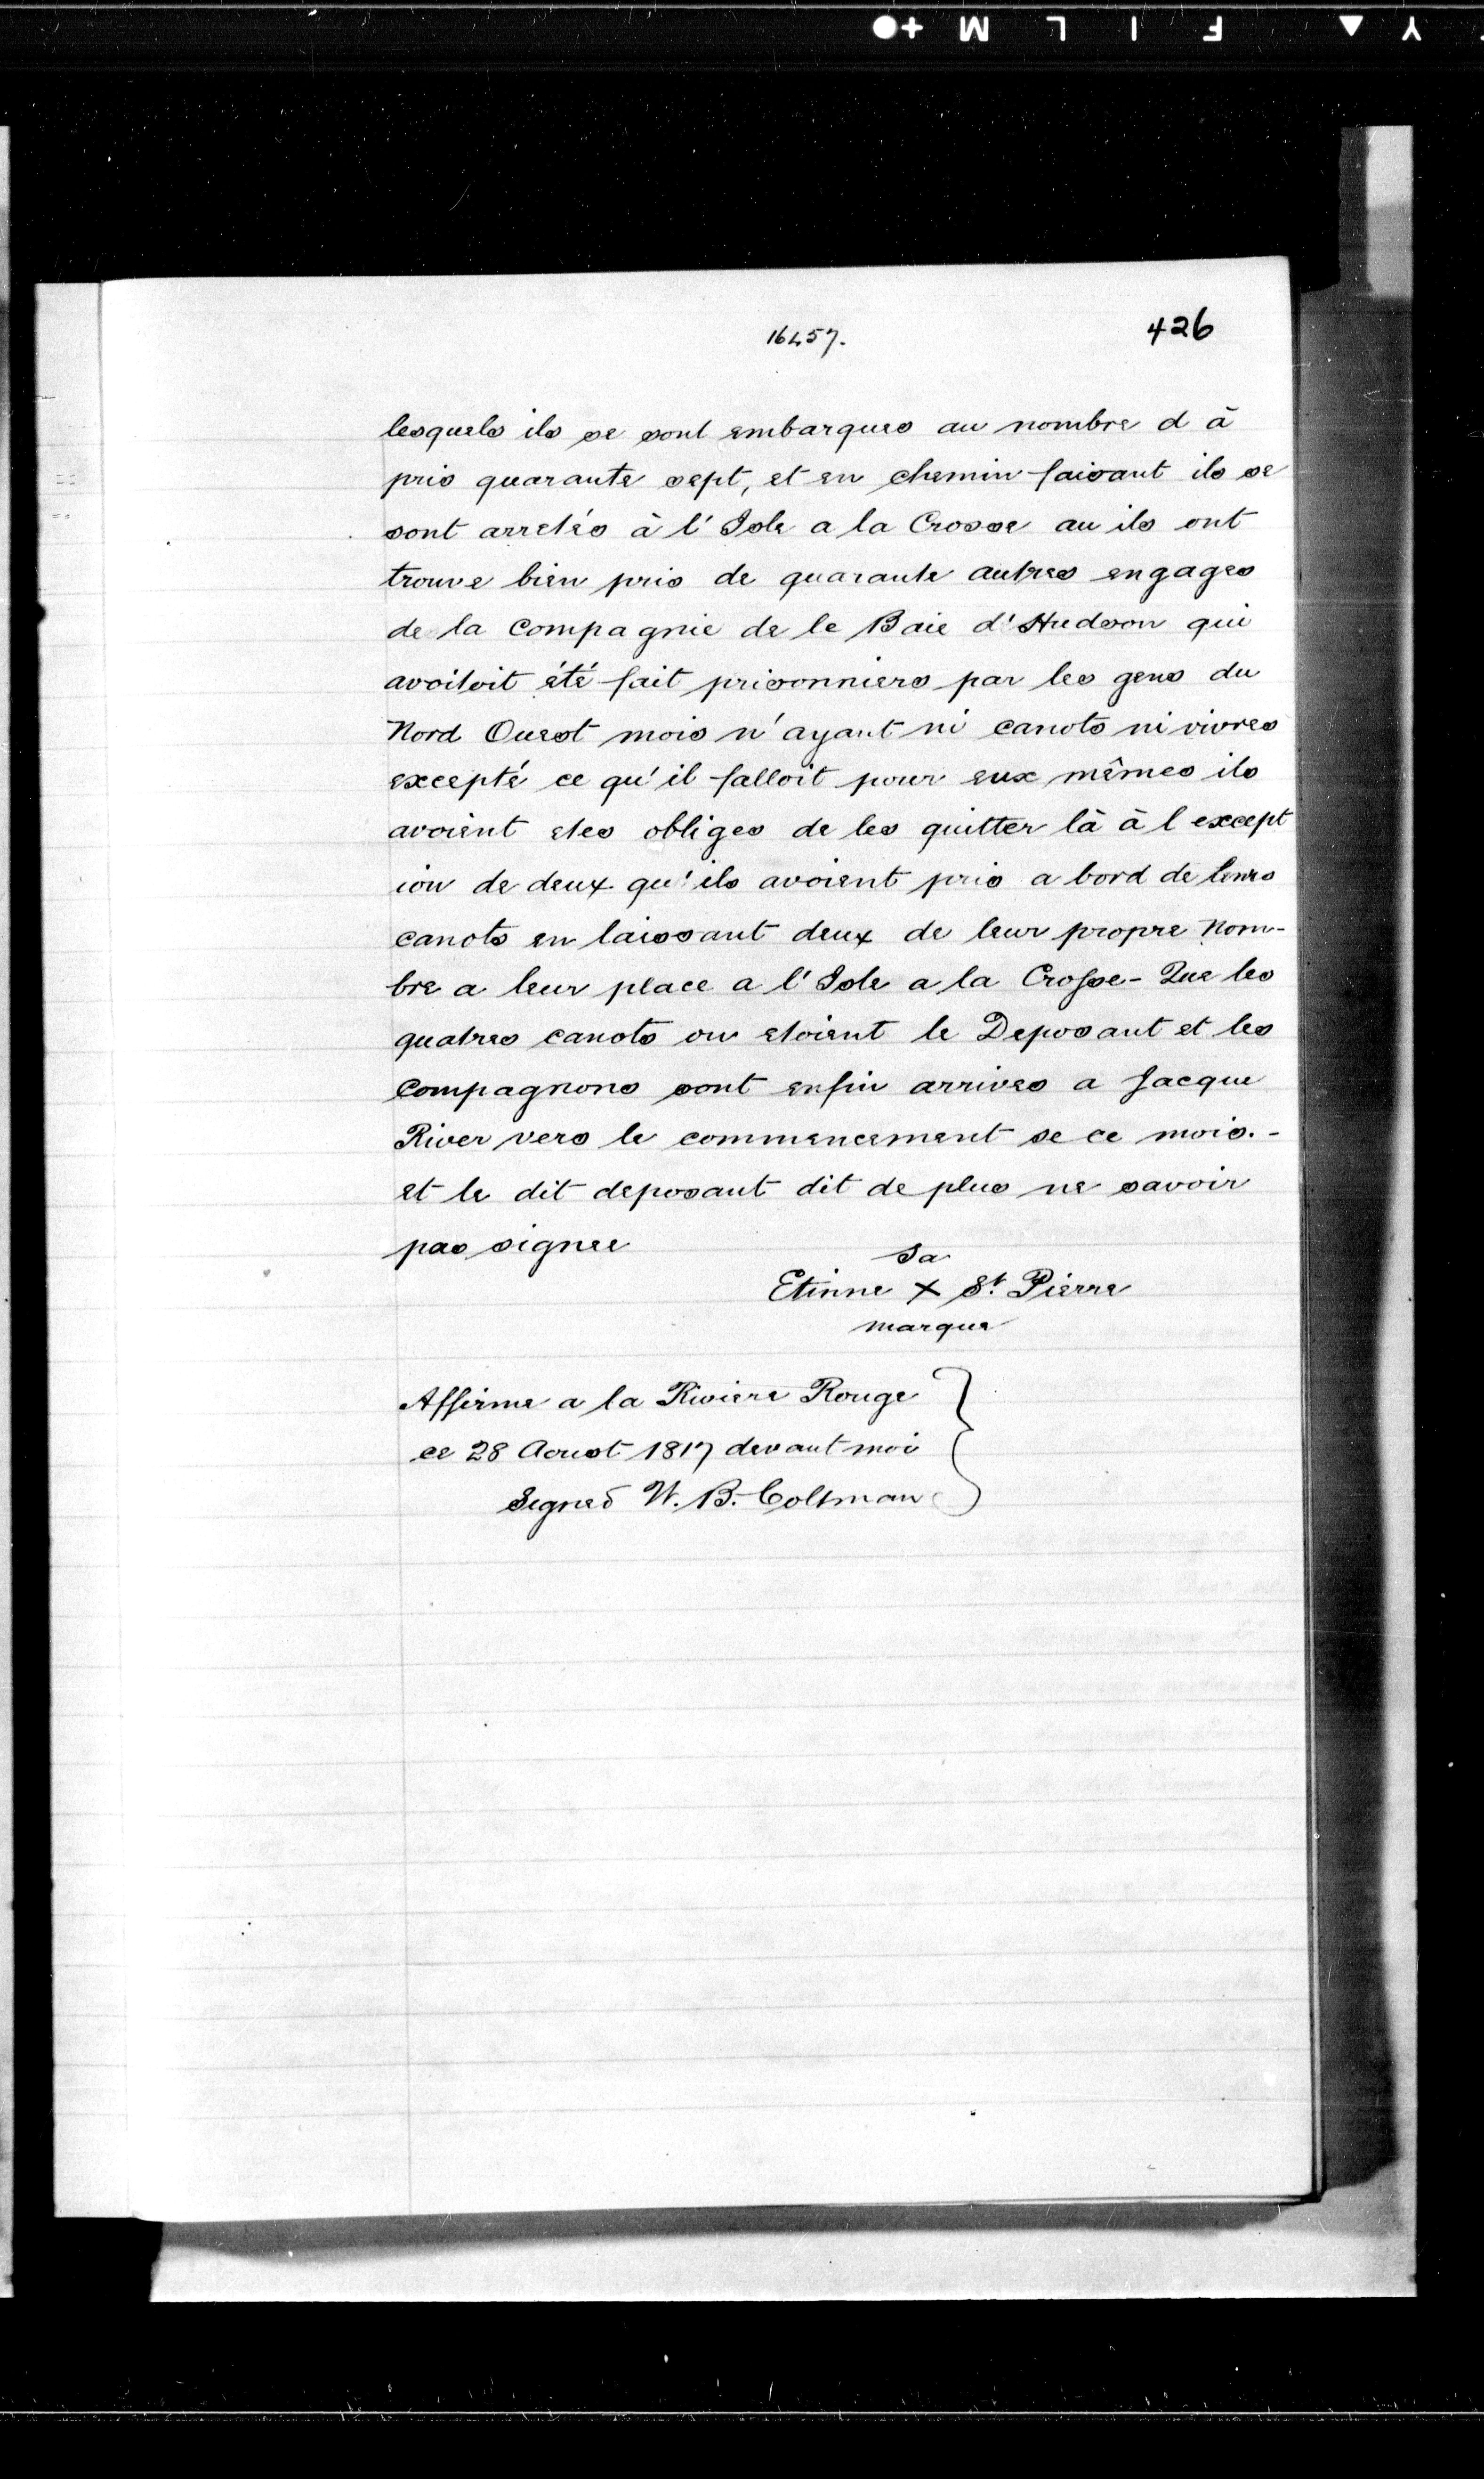 16457.
426
lesquels ils se sont embarques au nombre d à
pris quarante sept, et en chemin faisant ils se
sont arretés à l' Isle a la Crosse au ils ont
trouve bien pris de quarante autres engages
de la Compagnie de le Baie d' Hudson qui
avoitoit été fait prisonniers par les gens du
Nord Ouest mois n'ayant ni canots ni vivres
excepté ce qu'il falloit pour eux mêmes ils
avoient etes obliges de les quitter là à l except
ion de deux qu'ils avoient pris a bord de leurs
canots en laissant deux de leur propre Nom-
bre a leur place a l' Isle a la Crosse - Que les
quatres canots ou etoient le Deposant et les
Compagnons sont enfin arrives a Jacque
River vers le commencement se ce mois. -
et le dit deposant dit de plus ne savoir
pas signee
Sa
Etinne X St. Pierre
marque
Affirme a la Riviere Rouge
ce 28 Aoust 1817 devant moi
Signed W. B. Coltman